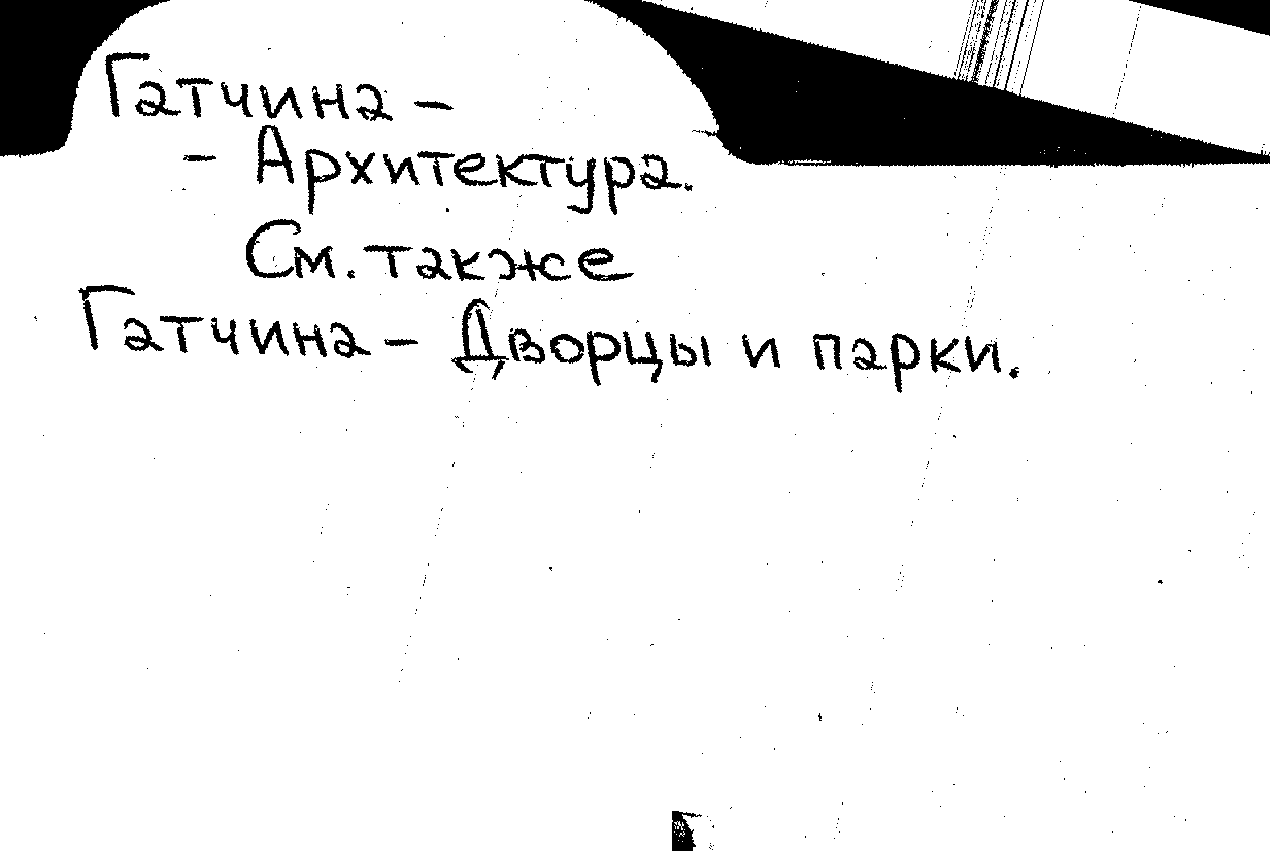 Гатчина –
– Архитектура.
См. также
Гатчина – Дворцы и парки.